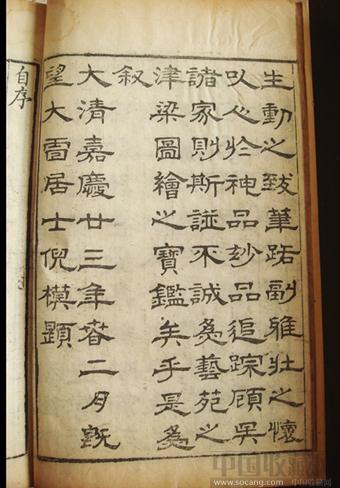 生動之致筆跖副雅壯之懷
㕥心於神品妙品追踪顧吳
諸家則斯誼不誠為藝苑之
津梁圖繪之寶鑑矣乎是為
敘
大清嘉慶廿三年春二月既
望大雷居士倪模題
自序
中国收藏
www.socang.com 中国收藏网